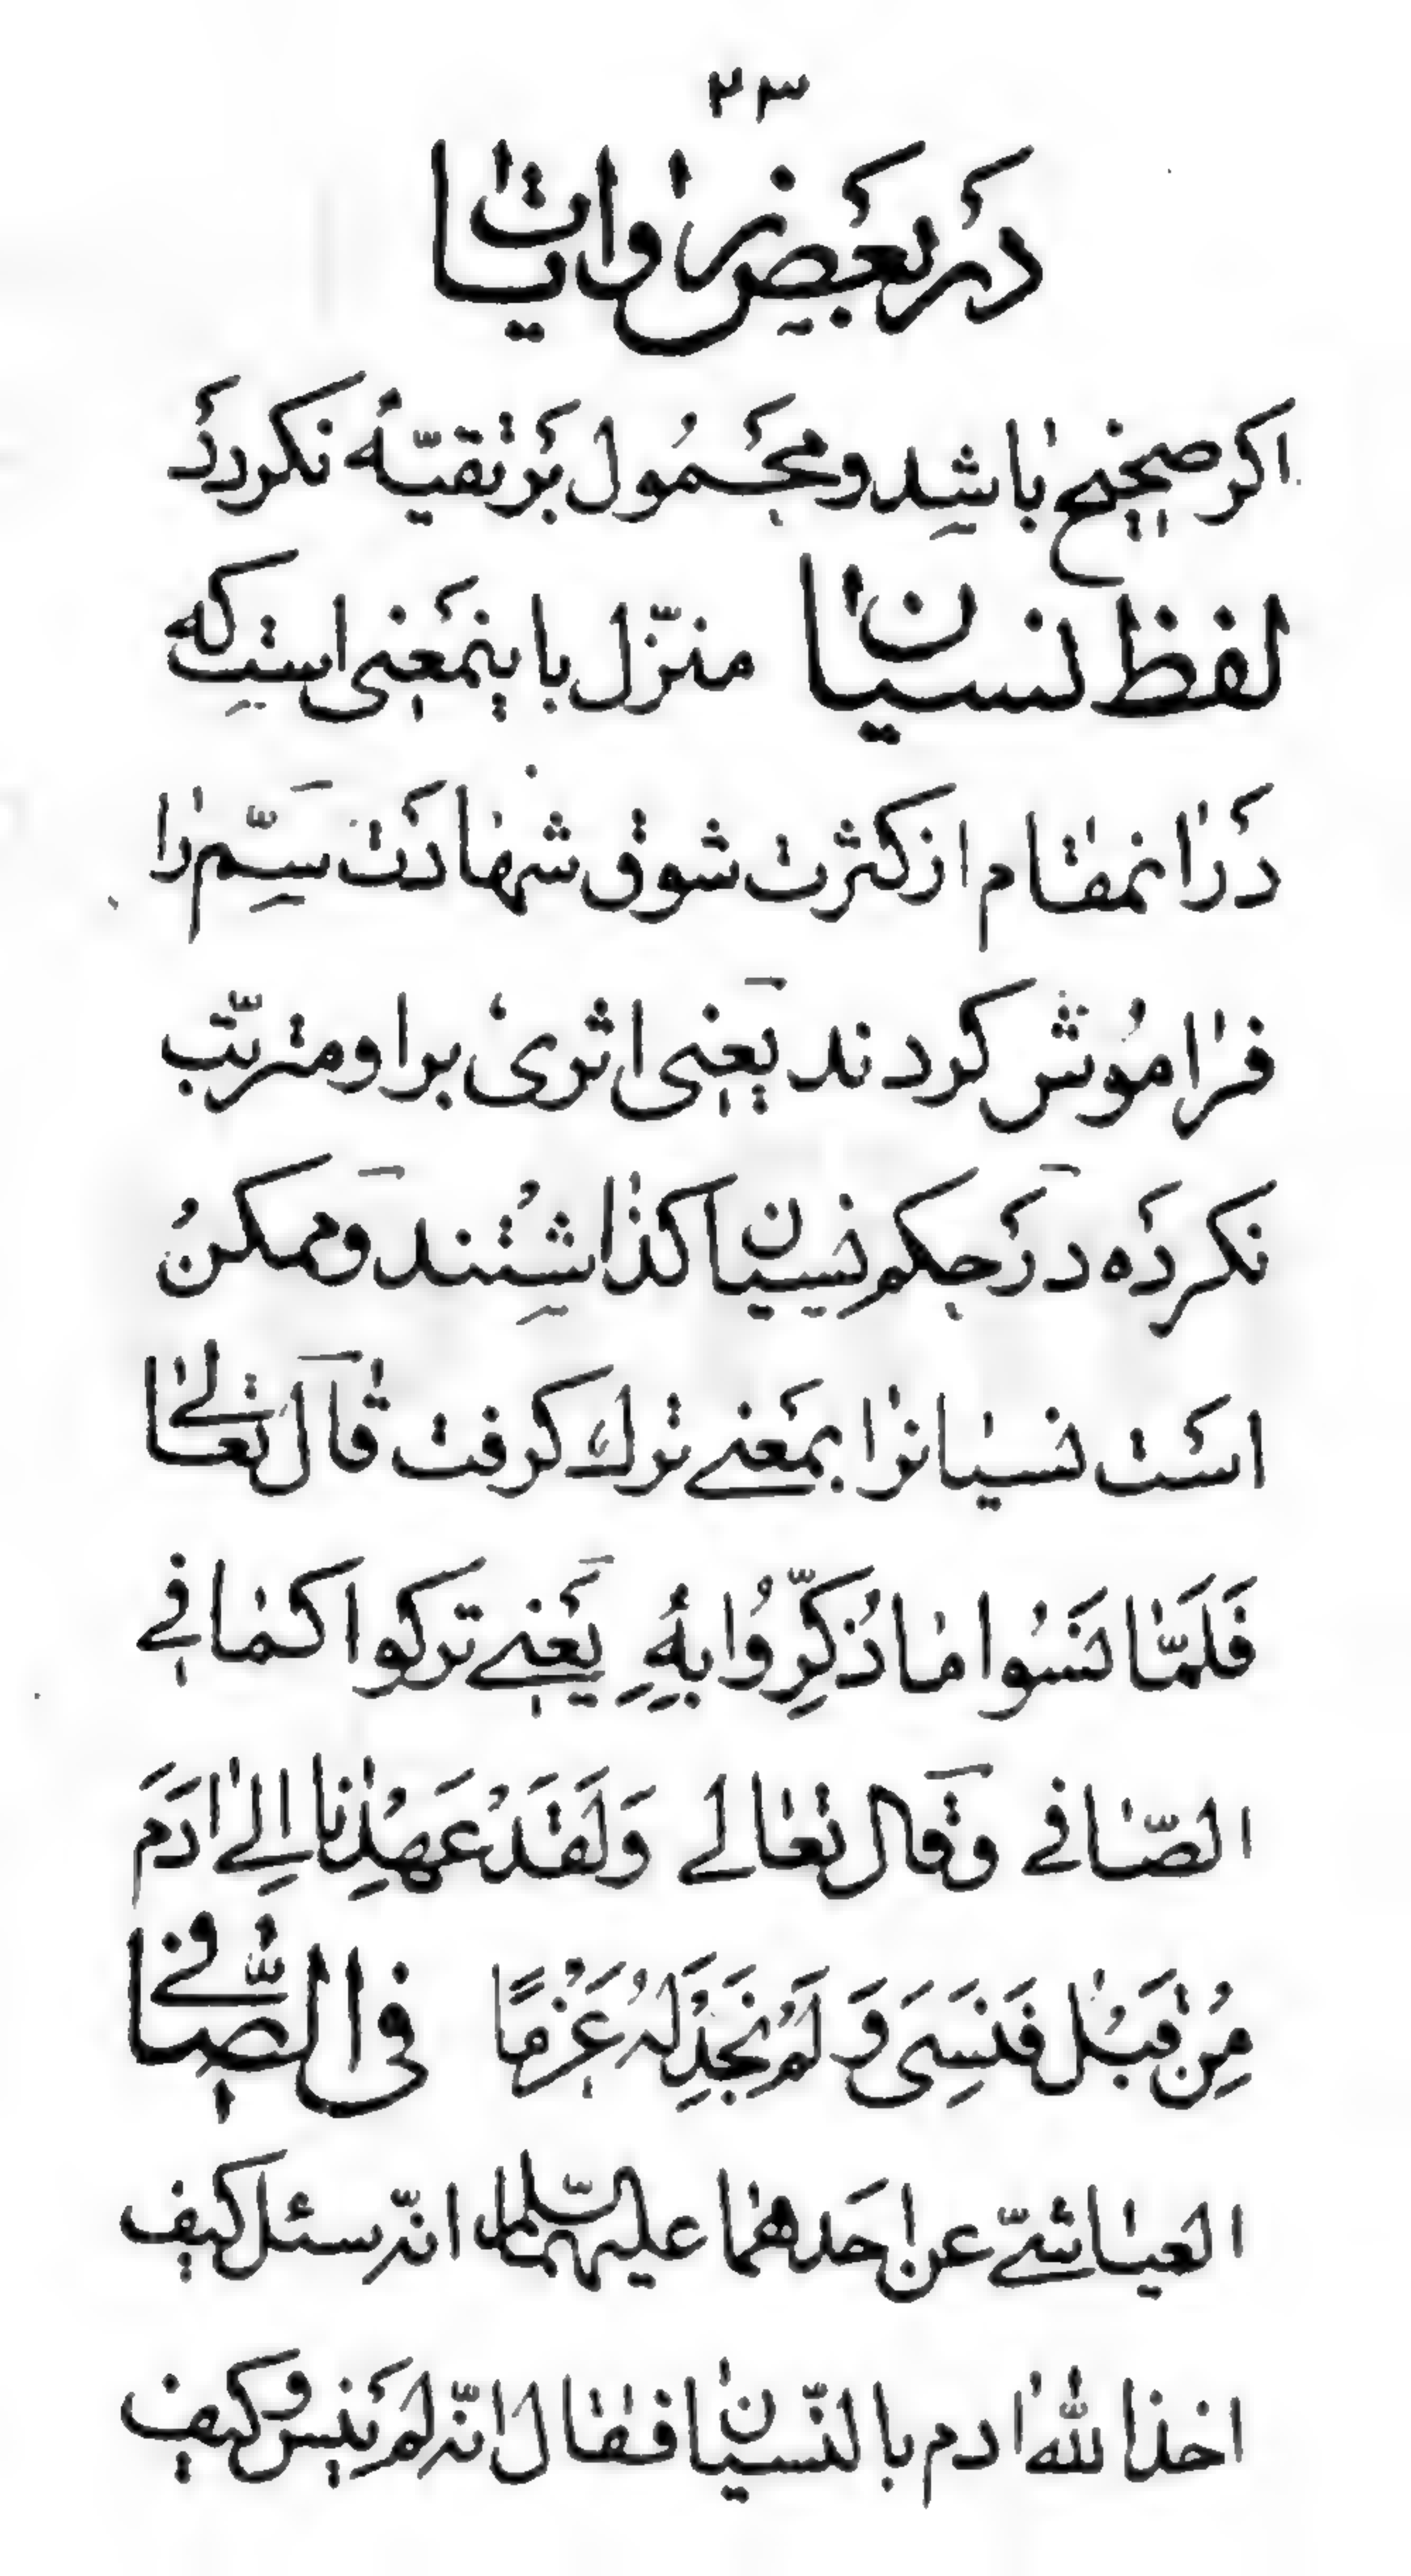 ٢٣
در بعض روایات
اکر صحیح باشد و محمول بر تقیّه نکردد
لفظ نسیان منزّل باینمعنی است که
در انمقام از کثرت شوق شهادت سمّ را
فراموش کردند یعنی اثری بر او مترتّب
نکرده در حکم نسیان کذاشتند و ممکن
است نسیانرا بمعنی ترك کرفت قال تعالی
فَلَمَّا نَسُوا مَا ذُكِّرُوا بِهِ یعنی ترکوا کما فی
الصّافی و قال تعالی وَلَقَدْ عَهِدْنَا اِلٰی ادَمَ
مِنْ قَبْلُ فَنَسِیَ وَ لَمْ نَجِدْ لَهُ عَزْمًا فی الصّافی
العیاشیّ عن احدهما علیهما السّلم انّه سئل کیف
اخذ الله ادم بالنّسیان فقال انّه لم ینس و کیف